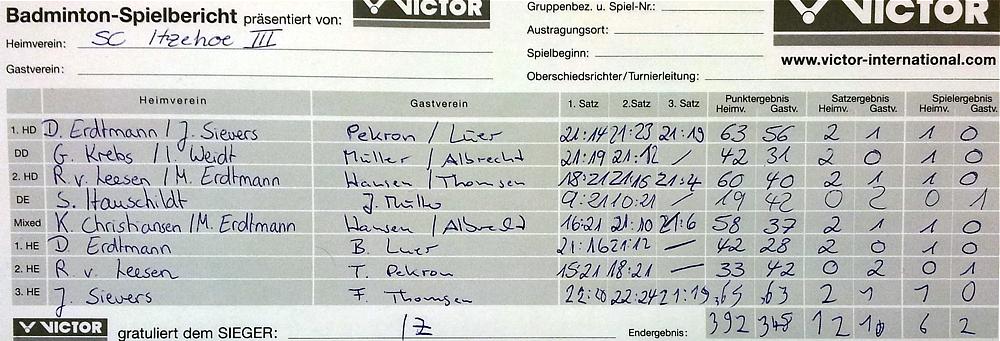 Badminton-Spielbericht präsentiert von: VICTOR Gruppenbez. u. Spiel-Nr.: VICTOR
Heimverein: SC Itzehoe III Austragungsort:
Gastverein: Spielbeginn: www.victor-international.com
Oberschiedsrichter/Turnierleitung:
Heimverein Gastverein 1. Satz 2. Satz 3. Satz Punktergebnis Heimv. Gastv. Satzergebnis Heimv. Gastv. Spielergebnis Heimv. Gastv.
1. HD D. Erdtmann / J. Sievers Pekron / Lüer 21:14 21:23 21:19 63 56 2 1 1 0
DD G. Krebs / I. Weidt Müller / Albrecht 21:19 21:12 / 42 31 2 0 1 0
2. HD R. v. Leesen / M. Erdtmann Hansen / Thomsen 18:21 21:15 21:4 60 40 2 1 1 0
DE S. Hauschildt J. Müller 9:21 10:21 / 19 42 0 2 0 1
Mixed K. Christiansen / M. Erdtmann Hansen / Albrecht 16:21 21:10 21:6 58 37 2 1 1 0
1. HE D. Erdtmann B. Lüer 21:16 21:12 — 42 28 2 0 1 0
2. HE R. v. Leesen T. Pekron 15:21 18:21 — 33 42 0 2 0 1
3. HE J. Sievers F. Thomsen 22:20 22:24 21:19 65 63 2 1 1 0
VICTOR gratuliert dem SIEGER: IZ Endergebnis: 392 12 10 6 2